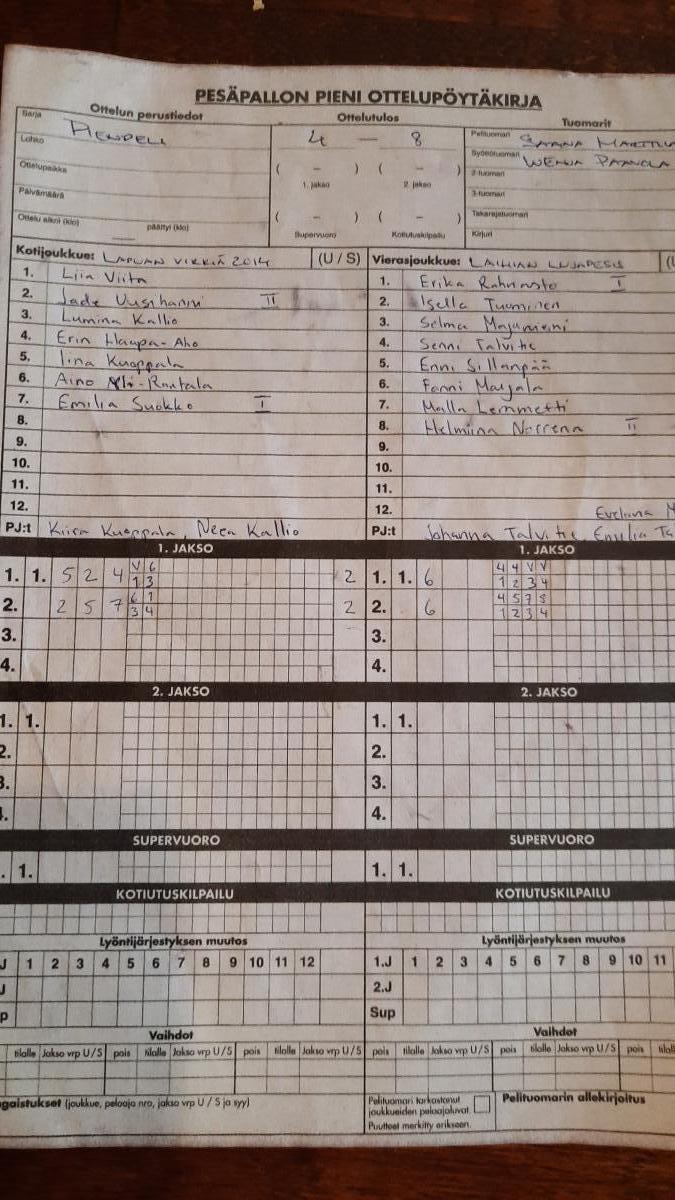 PESÄPALLON PIENI OTTELUPÖYTÄKIRJA
Ottelun perustiedot Ottelutulos Tuomarit
Sarja
Lohko
Ottelupaikka
Päivämäärä
Ottelu alkoi (klo) päättyi (klo)
4 — 8
( – ) ( – )
1. jakso 2. jakso
( – ) ( – )
Supervuoro Kotiutuskilpailu
Pelituomari
Syöttötuomari
2-tuomari
3-tuomari
Takarajatuomari
Kirjuri
Kotijoukkue: LAPUAN VIRKIÄ 2014 (U / S)
1. Liia Viita
2. Jade Uusihanni II
3. Lumina Kallio
4. Erin Haapa-Aho
5. Iina Kuoppala
6. Aino Yli-Rantala
7. Emilia Suokko I
8.
9.
10.
11.
12.
PJ:t Kiira Kuoppala, Neea Kallio
Vierasjoukkue: LAIHIAN LUJAPESIS
1. Erika Rahnasto I
2. Isella Tuominen
3. Selma Majumeini
4. Senni Talvitie
5. Enni Sillanpää
6. Fanni Marjala
7. Malla Lemmetti
8. Helmiina Norrena II
9.
10.
11.
12. Eveliina
PJ:t Johanna Talvitie, Emilia
1. JAKSO
1. 1. 5 2 4 V 6 2
1 3
2. 2 5 7 6 1 2
3 4
3.
4.
1. JAKSO
1. 1. 6 4 4 V V
1 2 3 4
2. 6 4 5 7 8
1 2 3 4
3.
4.
2. JAKSO
1. 1.
2.
3.
4.
2. JAKSO
1. 1.
2.
3.
4.
SUPERVUORO SUPERVUORO
. 1. 1. 1.
KOTIUTUSKILPAILU KOTIUTUSKILPAILU
Lyöntijärjestyksen muutos
J 1 2 3 4 5 6 7 8 9 10 11 12
J
p
Lyöntijärjestyksen muutos
1.J 1 2 3 4 5 6 7 8 9 10 11
2.J
Sup
Vaihdot Vaihdot
tilalle Jakso vrp U/S pois tilalle Jakso vrp U/S pois tilalle Jakso vrp U/S pois tilalle Jakso vrp U/S pois tilalle Jakso vrp U/S pois
gaistukset (joukkue, pelaaja nro, jakso vrp U / S ja syy)
Pelituomari tarkastanut
joukkueiden pelaajaluvat.
Puutteet merkitty erikseen.
Pelituomarin allekirjoitus